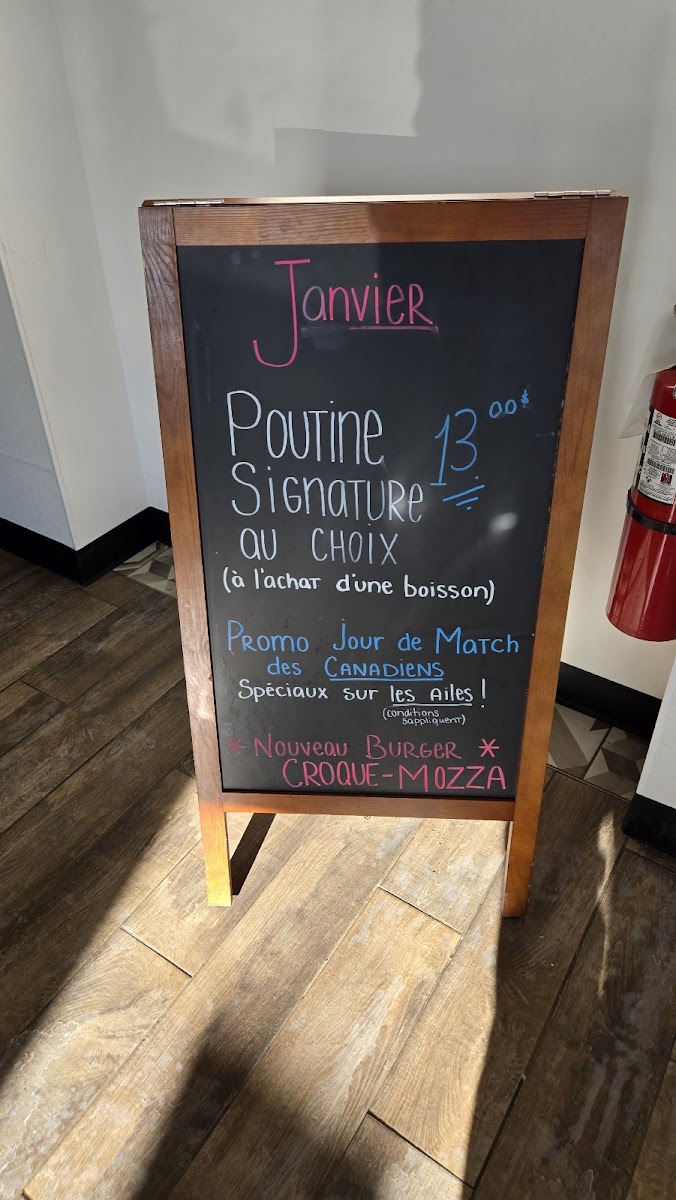 Janvier
Poutine
Signature
13.00$
au choix
(à l'achat d'une boisson)
Promo Jour de Match
des Canadiens
Spéciaux sur les ailes!
(conditions
s'appliquent)
* Nouveau Burger *
CROQUE-MOZZA